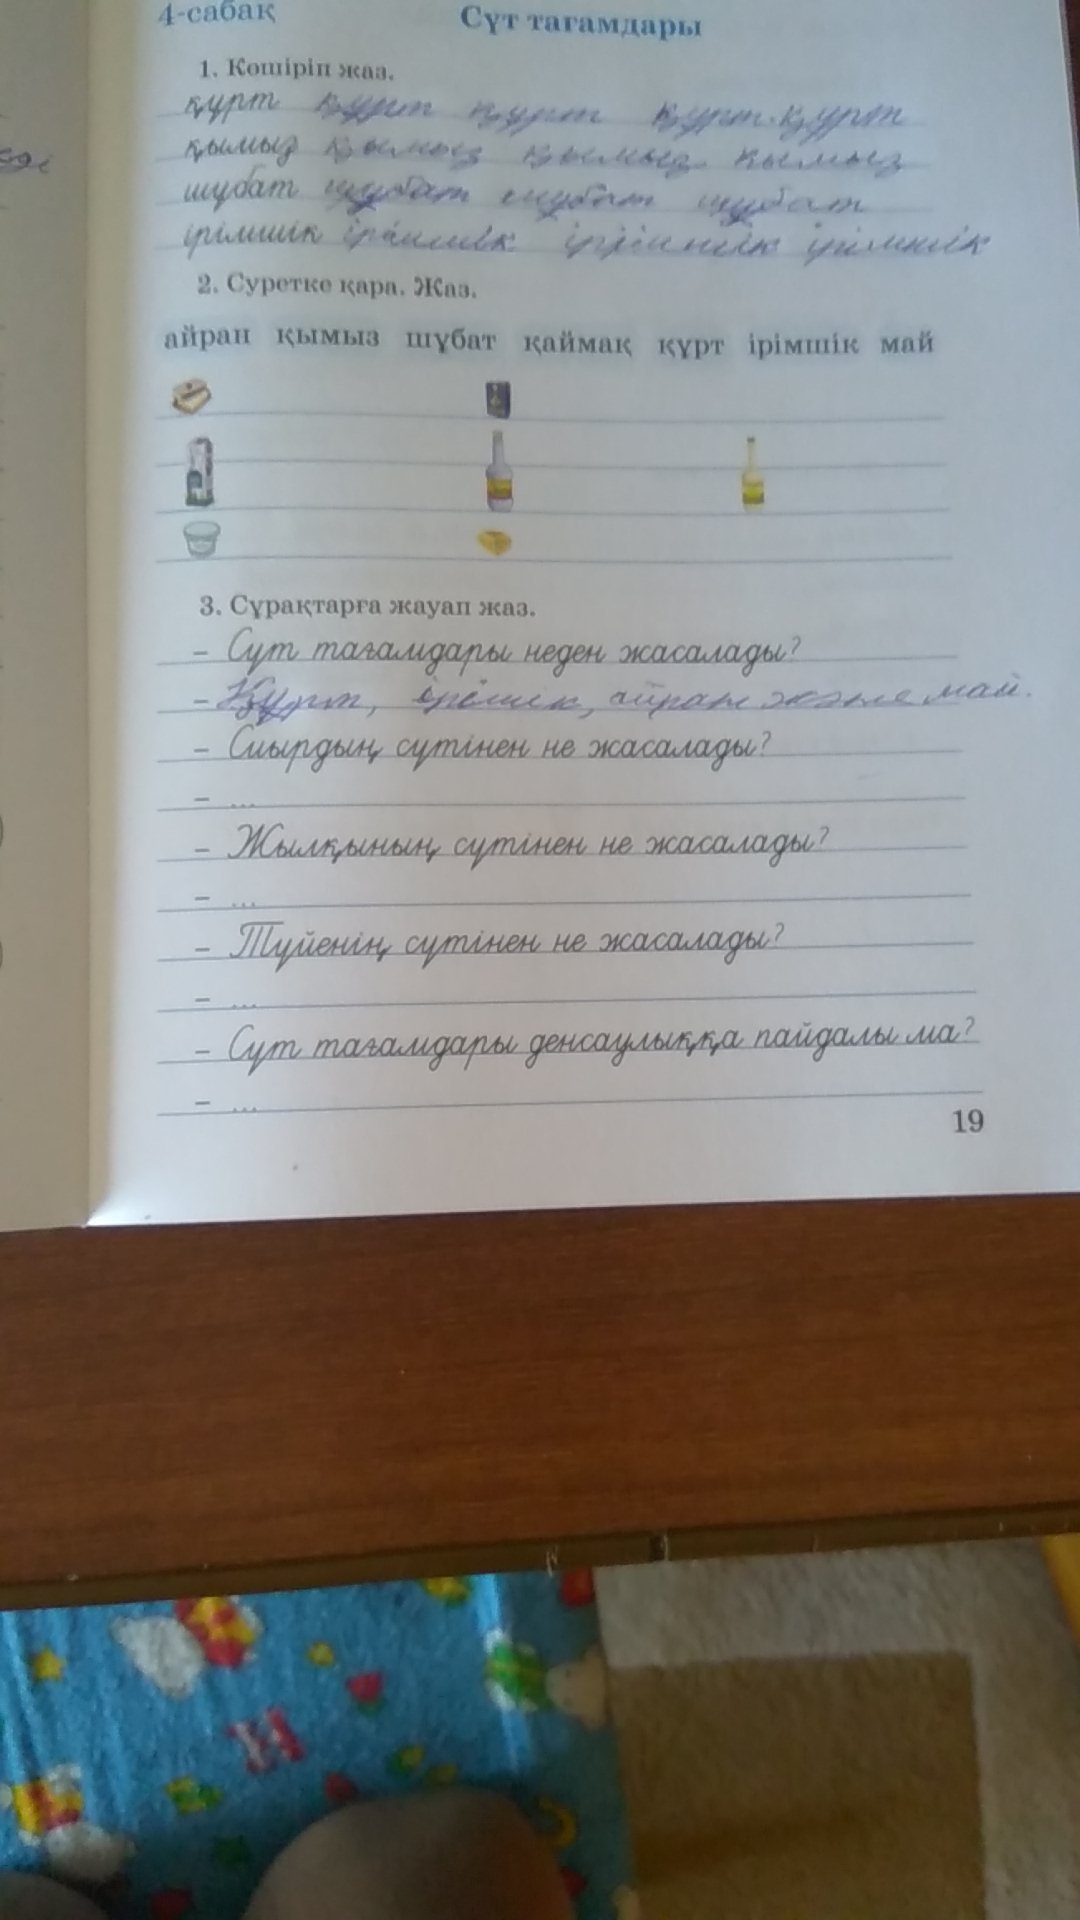 4-сабақ Сүт тағамдары
1. Көшіріп жаз.
құрт құрт құрт құрт құрт
қымыз қымыз қымыз қымыз
шұбат шұбат шұбат шұбат
ірімшік ірімшік ірімшік ірімшік
2. Суретке қара. Жаз.
айран қымыз шұбат қаймақ құрт ірімшік май
3. Сұрақтарға жауап жаз.
– Сүт тағамдары неден жасалады?
– Құрт, ірімшік, айран және май.
– Сиырдың сүтінен не жасалады?
– ...
– Жылқының сүтінен не жасалады?
– ...
– Түйенің сүтінен не жасалады?
– ...
– Сүт тағамдары денсаулыққа пайдалы ма?
– ...
19